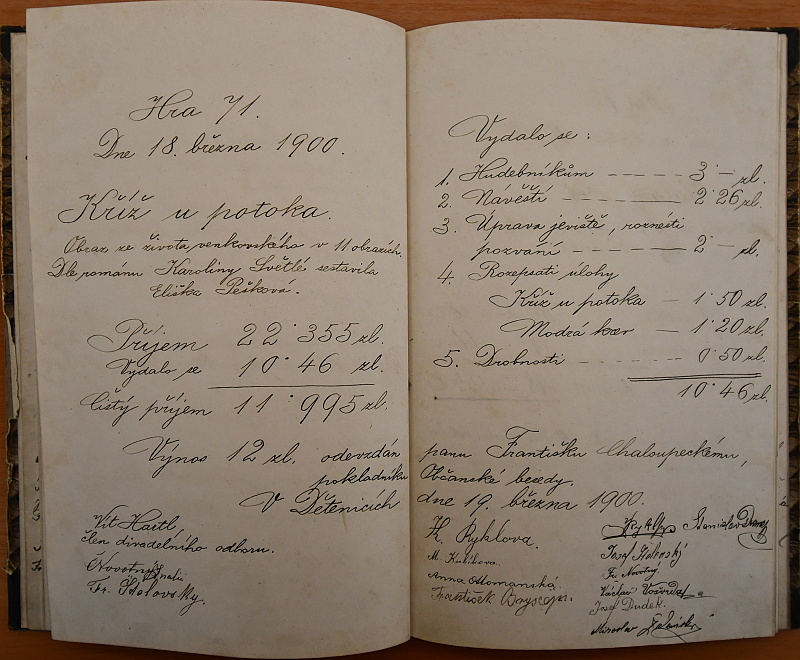 Hra 71.
Dne 18. března 1900.
Kříž u potoka.
Obraz ze života venkovského v 11 obrazích.
Dle románu Karoliny Světlé sestavila
Eliška Pešková.
Příjem 22˙355 zl.
Vydalo se 10˙46 zl.
Čistý příjem 11˙995 zl.
Výnos 12 zl. odevzdán
pokladníku
V Dětenicích
Vít Hartl,
člen divadelního odboru.
Novotný
Fr.
Vydalo se:
1. Hudebníkům ----- 3˙— zl.
2. Návěští -------- 2˙26 zl.
3. Úprava jeviště, roznésti
pozvání ——— 2˙— zl.
4. Rozepsati úlohy
Kříž u potoka — 1˙50 zl.
Modrá kaer — 1˙20 zl.
5. Drobnosti ------ 0˙50 zl.
10˙46 zl.
panu Františku Chaloupeckému,
Občanské besedy,
dne 19. března 1900.
H. Ryklova.
M. Kulikova.
Anna
František
Stanislav
Josef
Fr. Novotný
Václav
Josef Dudek.
Miroslav